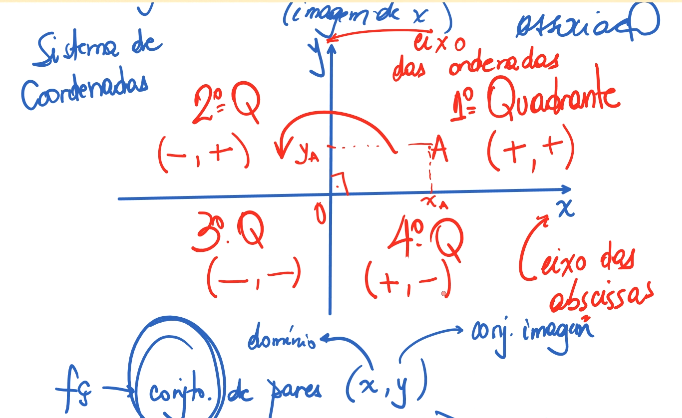 (imagem de x)
associação
Sistema de
Coordenadas
y
eixo
das ordenadas
2º Q
(–, +)
1º Quadrante
(+, +)
yA
A
0
xA
x
3º Q
(–, –)
4º Q
(+, –)
eixo das
abscissas
domínio
conj. imagem
fç → conjto. de pares (x, y)